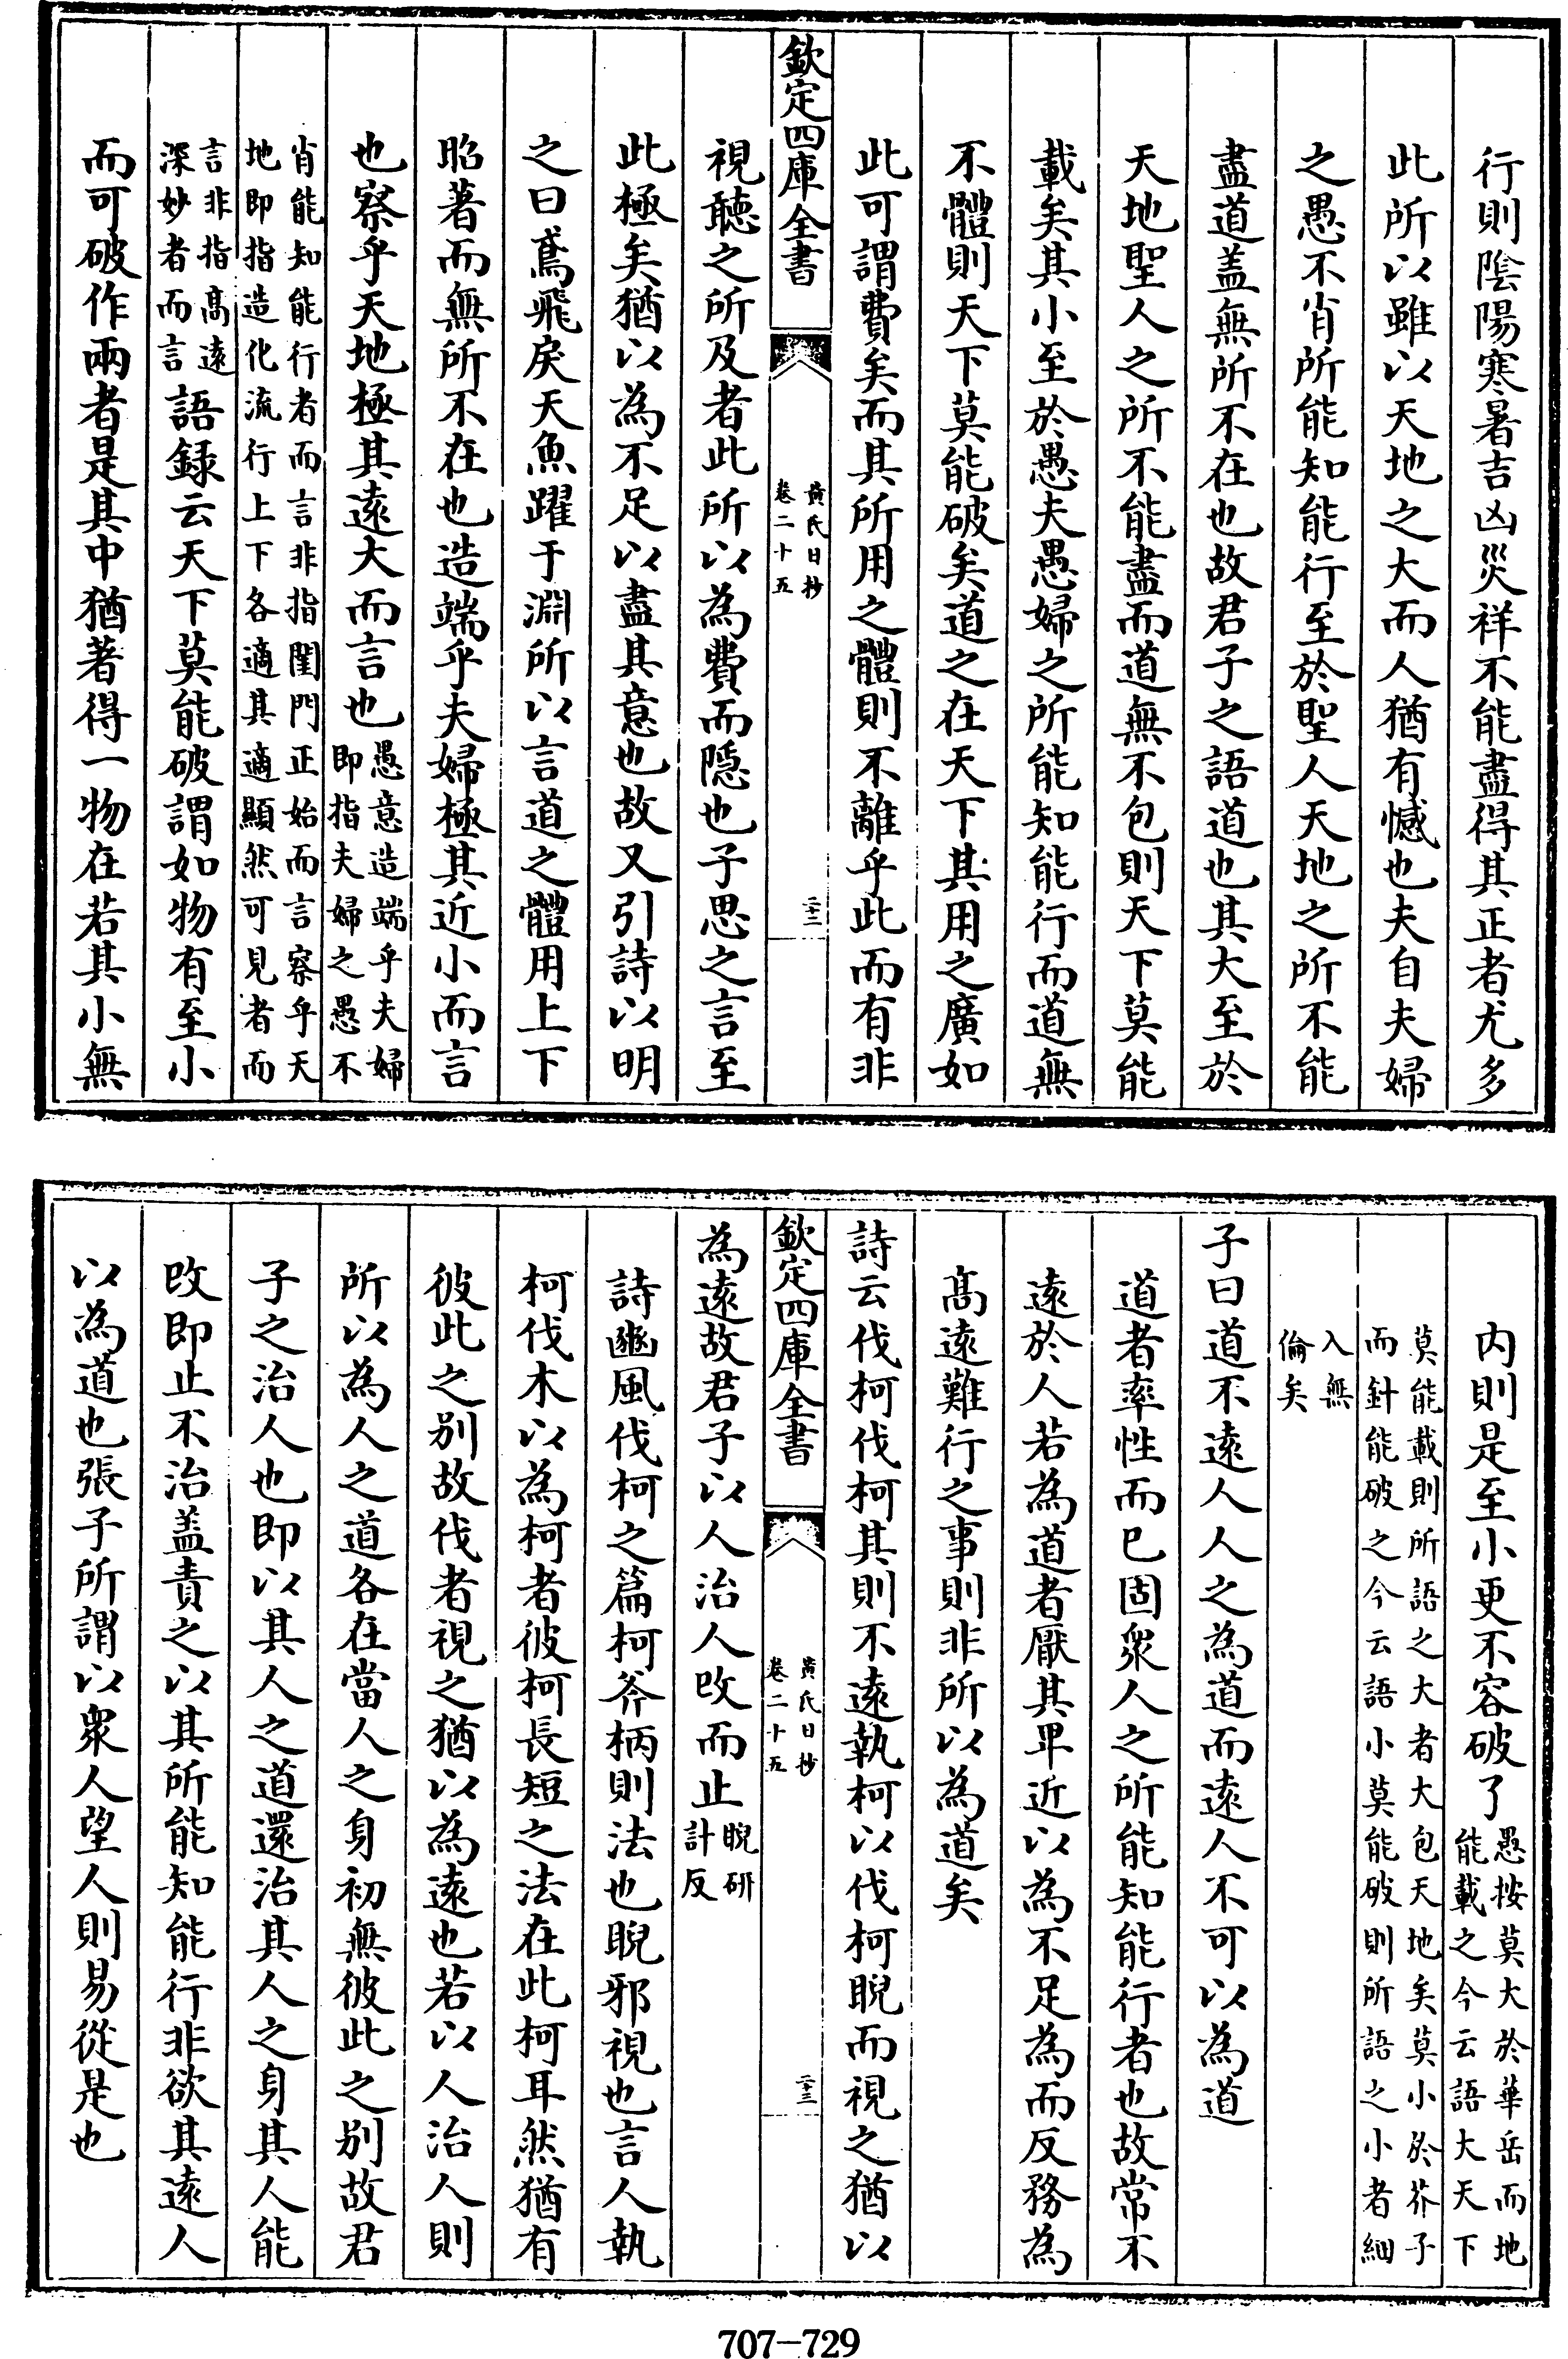 行則陰陽寒暑吉凶災祥不能盡得其正者尤多
此所以雖以天地之大而人猶有憾也夫自夫婦
之愚不肖所能知能行至於聖人天地之所不能
盡道盖無所不在也故君子之語道也其大至於
天地聖人之所不能盡而道無不包則天下莫能
載矣其小至於愚夫愚婦之所能知能行而道無
不體則天下莫能破矣道之在天下其用之廣如
此可謂費矣而其所用之體則不離乎此而有非
欽定四庫全書
黃氏日抄
卷二十五
二十三
視聽之所及者此所以為費而隱也子思之言至
此極矣猶以為不足以盡其意也故又引詩以明
之曰鳶飛戾天魚躍于淵所以言道之體用上下
昭著而無所不在也造端乎夫婦極其近小而言
也察乎天地極其遠大而言也
愚意造端乎夫婦
即指夫婦之愚不
肖能知能行者而言非指閨門正始而言察乎天
地即指造化流行上下各適其適顯然可見者而
言非指高遠
深妙者而言
語録云天下莫能破謂如物有至小
而可破作兩者是其中猶著得一物在若其小無
内則是至小更不容破了
愚按莫大於華岳而地
能載之今云語大天下
莫能載則所語之大者大包天地矣莫小於芥子
而針能破之今云語小莫能破則所語之小者細
入無
倫矣
子曰道不遠人人之為道而遠人不可以為道
道者率性而已固衆人之所能知能行者也故常不
遠於人若為道者厭其卑近以為不足為而反務為
高遠難行之事則非所以為道矣
詩云伐柯伐柯其則不遠執柯以伐柯睨而視之猶以
欽定四庫全書
黃氏日抄
卷二十五
二十三
為遠故君子以人治人改而止
睨研
計反
詩豳風伐柯之篇柯斧柄則法也睨邪視也言人執
柯伐木以為柯者彼柯長短之法在此柯耳然猶有
彼此之別故伐者視之猶以為遠也若以人治人則
所以為人之道各在當人之身初無彼此之別故君
子之治人也即以其人之道還治其人之身其人能
改即止不治盖責之以其所能知能行非欲其遠人
以為道也張子所謂以衆人望人則易從是也
707-729